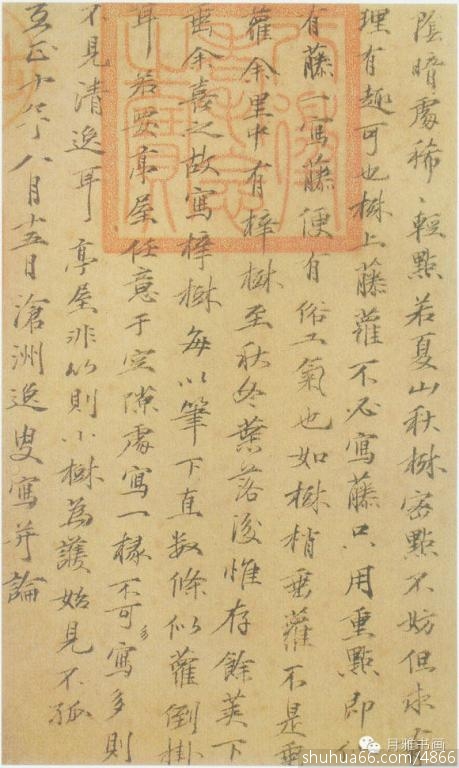 陰暗處稀輕點若夏山秋樹密點不妨但求
理有趣可也樹上藤蘿不必寫藤只用重點即似
有藤一寫藤便有俗工氣也如樹梢垂蘿不是
蘿余里中有梓樹至秋冬葉落後惟存餘莢下
垂余喜之故寫梓樹每以筆下直数條似蘿倒掛
耳若要亭屋任意于空隙處寫一椽不可多寫多則
不見清逸耳亭屋非竹則小樹為護始見不孤
至正十年八月十五日滄洲逸叟寫并論
月雅书画
shuhua66.com/4866